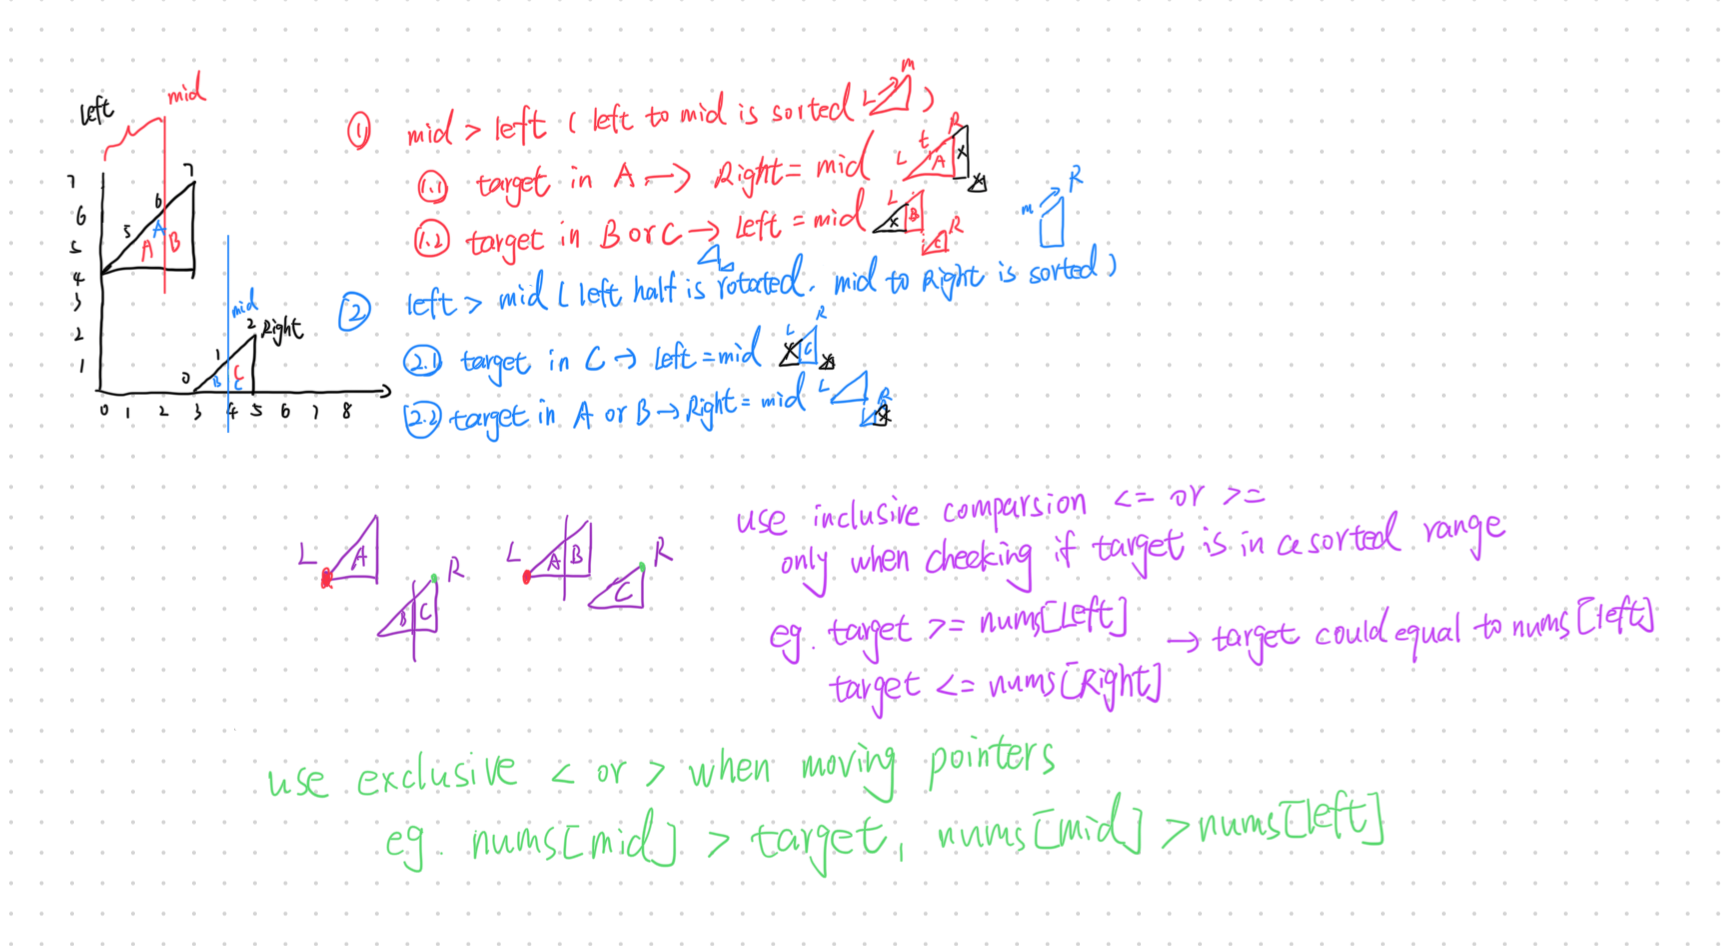 left
mid
7
6
5
4
3
2
1
5
6
7
A
A
B
mid
0
1
2
Right
B
C
C
0 1 2 3 4 5 6 7 8
① mid > left ( left to mid is sorted L m )
1.1 target in A → Right = mid L t A R x x
1.2 target in B or C → Left = mid L x B C R
m R
② left > mid ( left half is rotated. mid to Right is sorted )
2.1 target in C → Left = mid L R x C x
2.2 target in A or B → Right = mid L R x
L A B C R
L A B C R
use inclusive comparsion <= or >=
only when checking if target is in a sorted range
eg. target >= nums[left] → target could equal to nums[left]
target <= nums[Right]
use exclusive < or > when moving pointers
eg. nums[mid] > target, nums[mid] > nums[left]